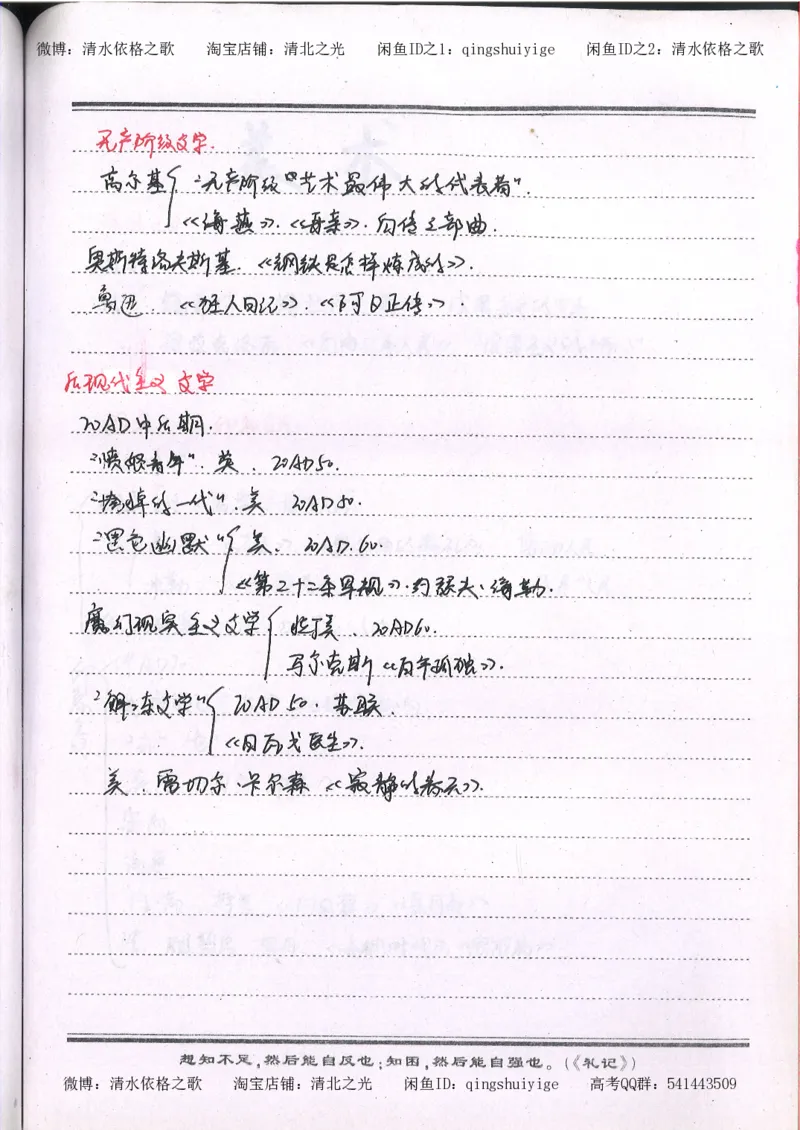 微博：清水依格之歌 淘宝店铺：清北之光 闲鱼ID之1：qingshuiyige 闲鱼ID之2：清水依格之歌
无产阶级文学.
高尔基 "无产阶级艺术最伟大的代表者".
《海燕》.《母亲》.自传三部曲.
奥斯特洛夫斯基.《钢铁是怎样炼成的》.
鲁迅.《狂人日记》.《阿Q正传》.
后现代主义文学
20AD中后期.
"愤怒青年".英.20AD50.
"垮掉的一代".美 20AD50.
"黑色幽默" 美.20AD.60.
《第二十二条军规》.约瑟夫·海勒.
魔幻现实主义文学 拉丁美.20AD60.
马尔克斯《百年孤独》.
"解冻文学" 20AD50.苏联.
《日瓦戈医生》.
美.雷切尔·卡尔森《寂静的春天》.
想知不足，然后能自反也；知困，然后能自强也。(《礼记》)
微博：清水依格之歌 淘宝店铺：清北之光 闲鱼ID：qingshuiyige 高考QQ群：541443509